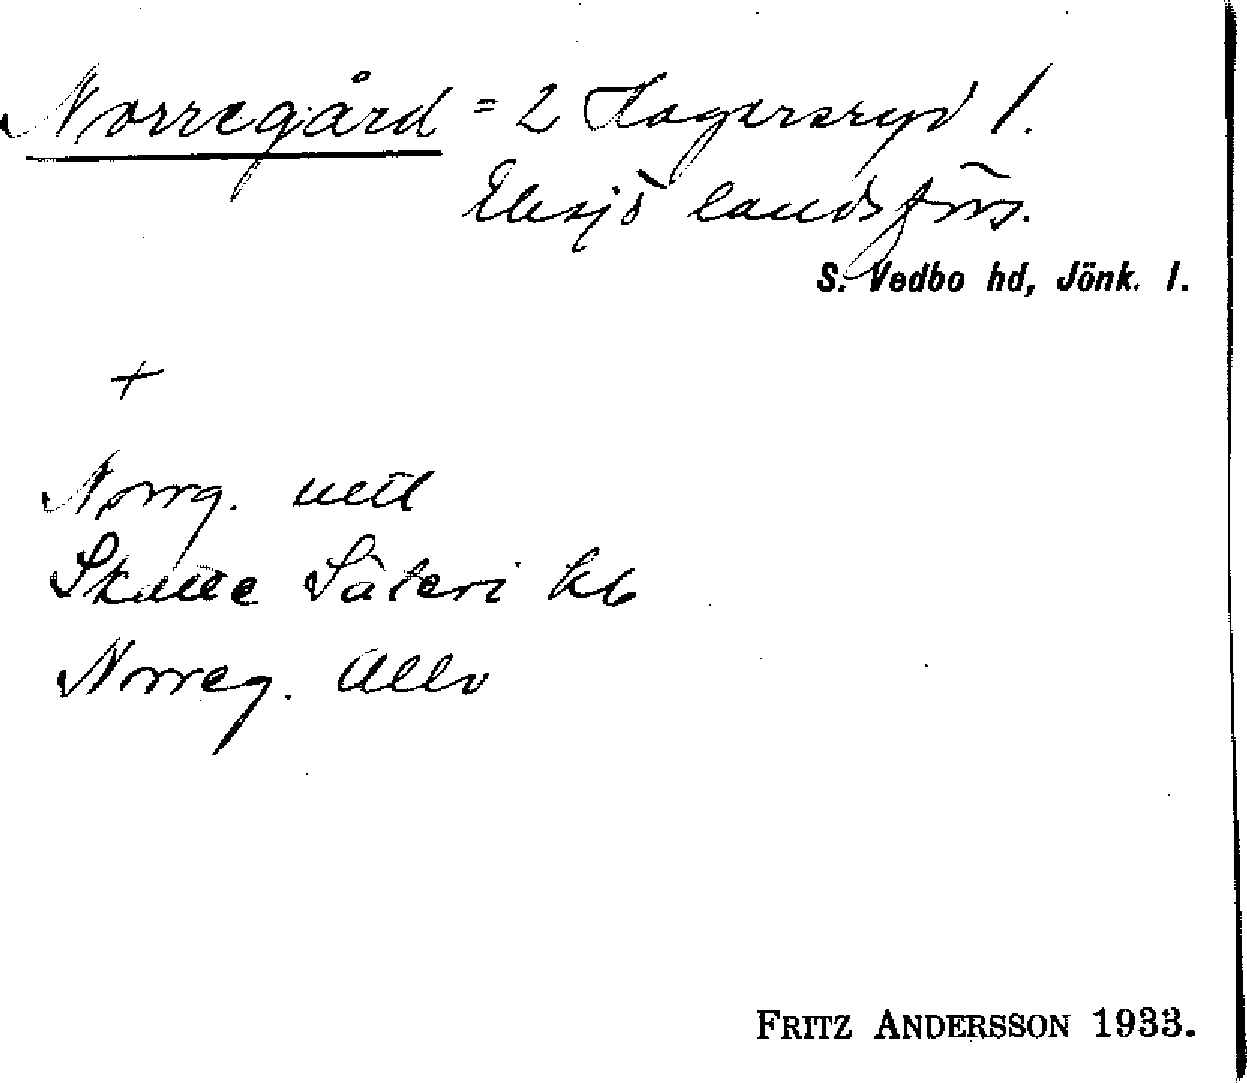 Norregård = 2 Hagersryd 1.
Eksjö landsförs.
S. Vedbo hd, Jönk. l.
+
Norrg. uttl
Skatte Säteri kb
Norreg. Allv
FRITZ ANDERSSON 1933.